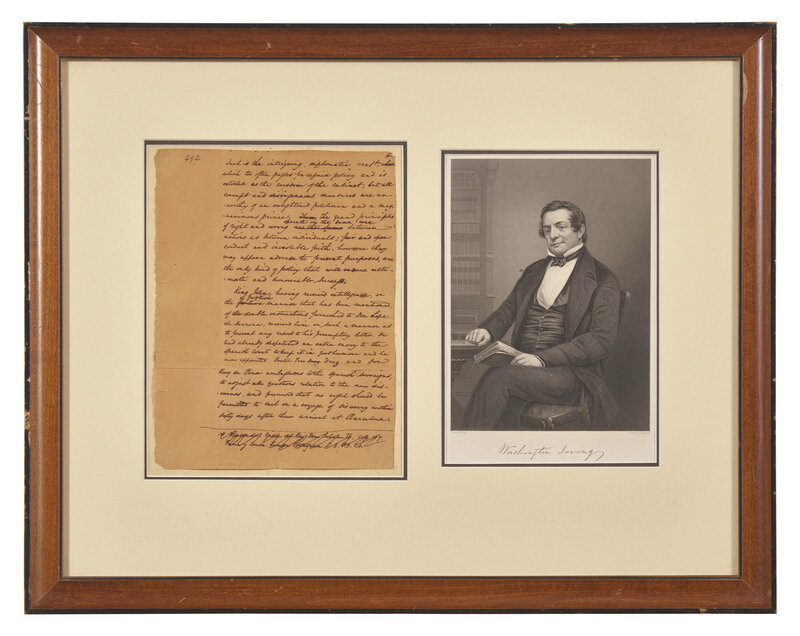 492
Such is the intriguing diplomatic craft
which too often passes for refined policy and is
extolled as the wisdom of the cabinet; but all
corrupt and disingenuous measures are un-
worthy of an enlightened politician and a mag-
nanimous prince. The grand principles
operate in the same
of right and wrong between
nations as between individuals; fair and open
conduct and inviolable faith, however they
may appear adverse to present purposes, are
the only kind of policy that will ensure ulti-
mate and honourable success.
King John, having received intelligence, in
of furtive
the manner that has been mentioned
of the double instructions furnished to Don Lope
de Herrera, received him in such a manner as
to prevent any resort to his peremptory letter. He
had already dispatched an extra envoy to the
Spanish court to keep it in good humour and he
now appointed Doctor Pero Diaz and Don
Ruy de Pena ambassadors to the Spanish sovereigns,
to adjust all questions relative to the new dis-
coveries, and promised that no vessel should be
permitted to sail on a voyage of discovery within
sixty days after their arrival at Barcelona.
Washington Irving